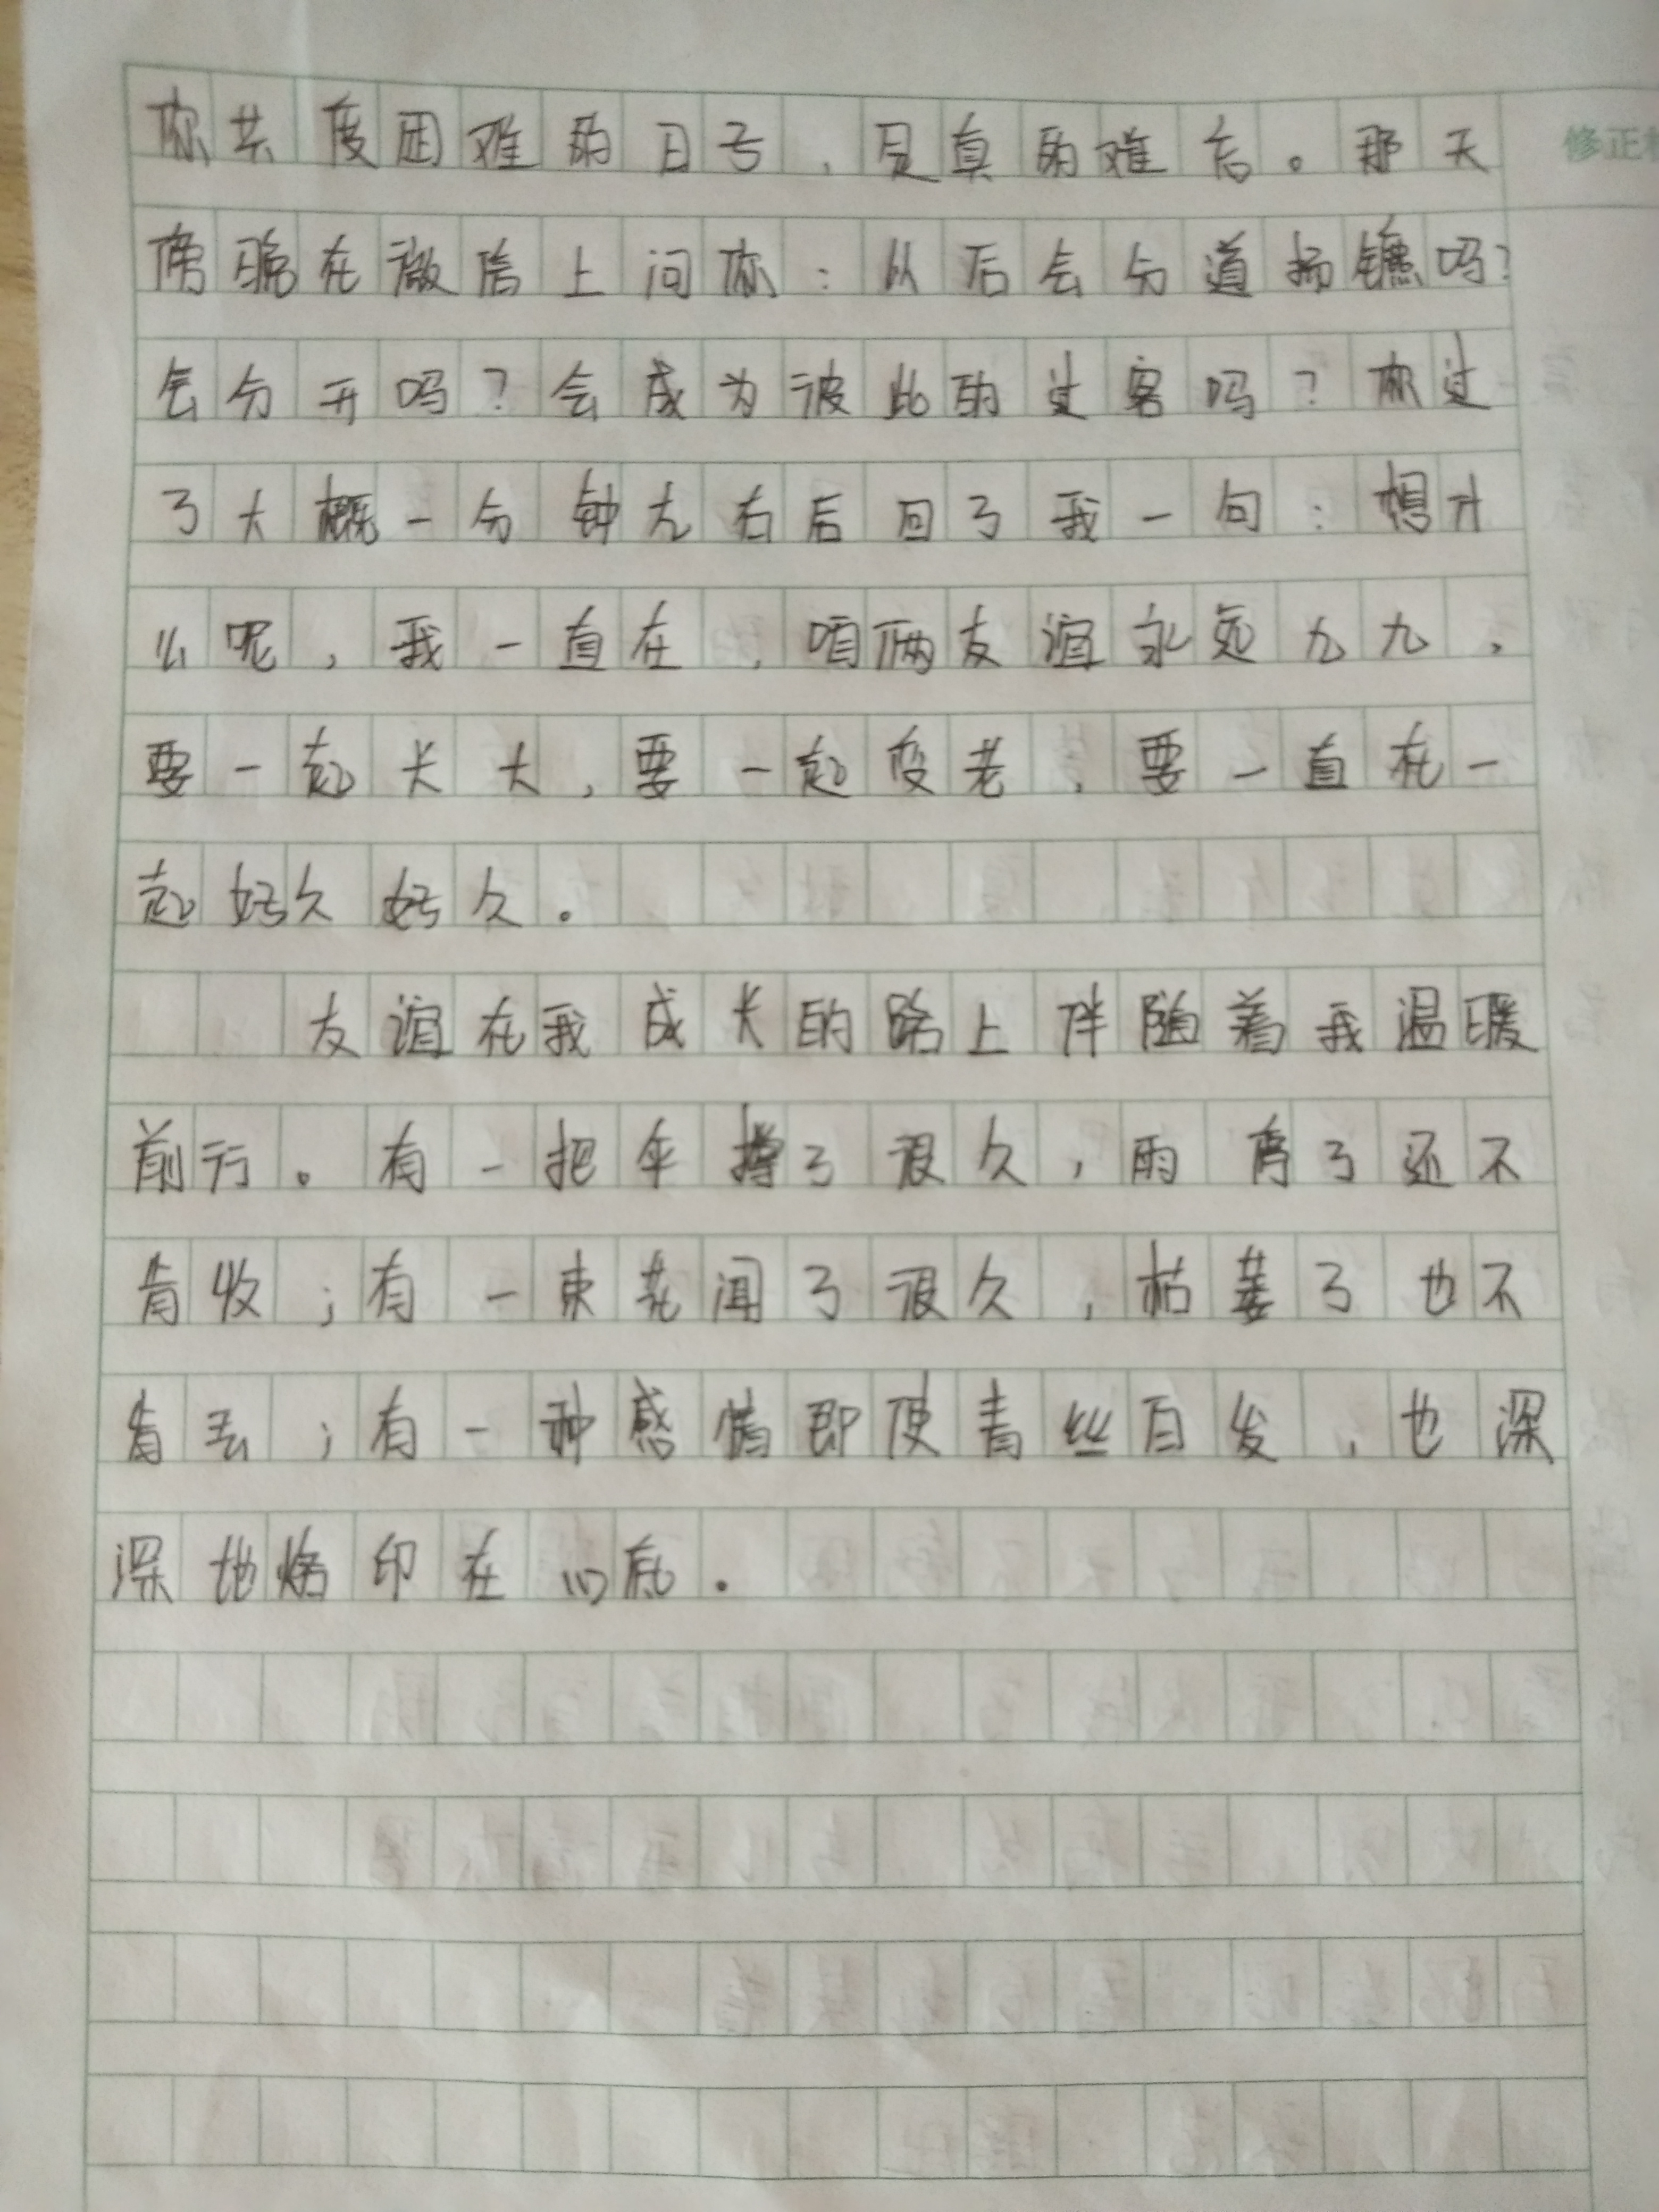 你共度困难的日子，是真的难忘。那天
傍晚在微信上问你：以后会分道扬镳吗？
会分开吗？会成为彼此的过客吗？你过
了大概一分钟左右后回了我一句：想什
么呢，我一直在，咱俩友谊永远九九，
要一起长大，要一起变老，要一直在一
起好久好久。
友谊在我成长的路上伴随着我温暖
前行。有一把伞撑了很久，雨停了还不
肯收；有一束花闻了很久，枯萎了也不
肯丢；有一种感情即使青丝白发，也深
深地烙印在心底。
修正